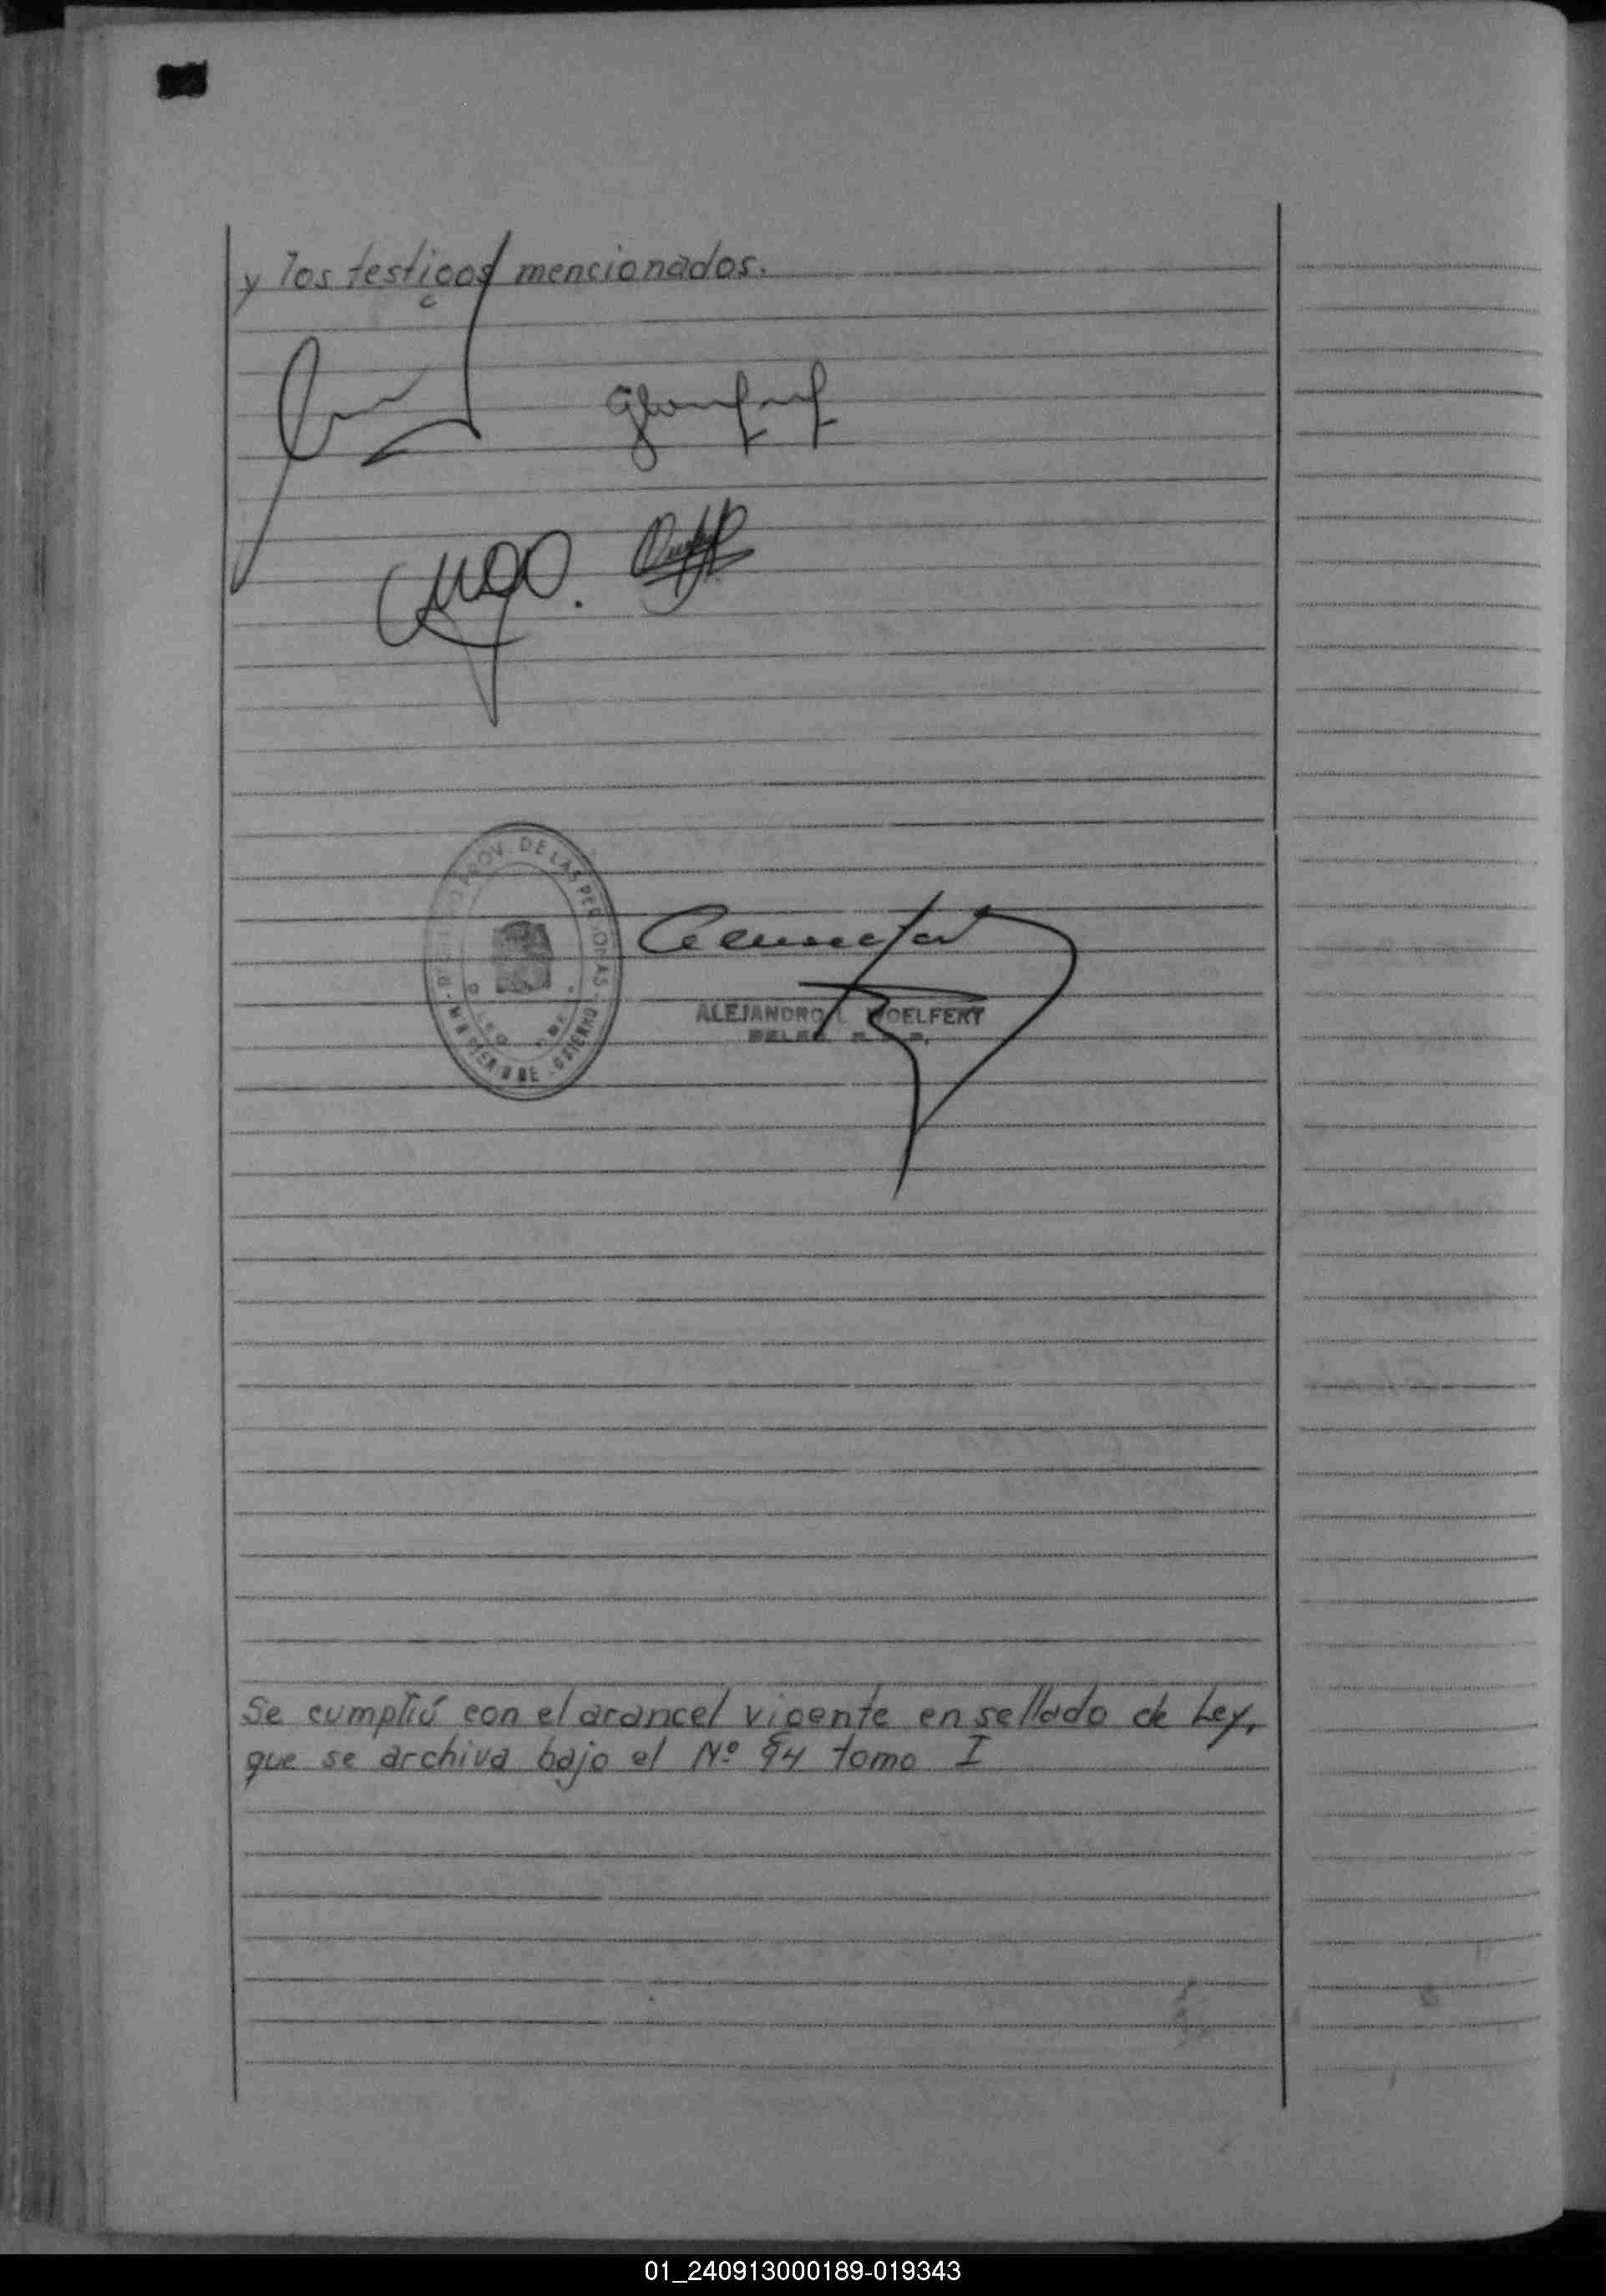 y los testigos mencionados.
PROV. DE LAS PERSONAS
MINISTERIO DE GOBIERNO
ALEJANDRO L. WOELFERT
Se cumplió con el arancel vigente en sellado de Ley,
que se archiva bajo el Nº 94 tomo I
01_240913000189-019343